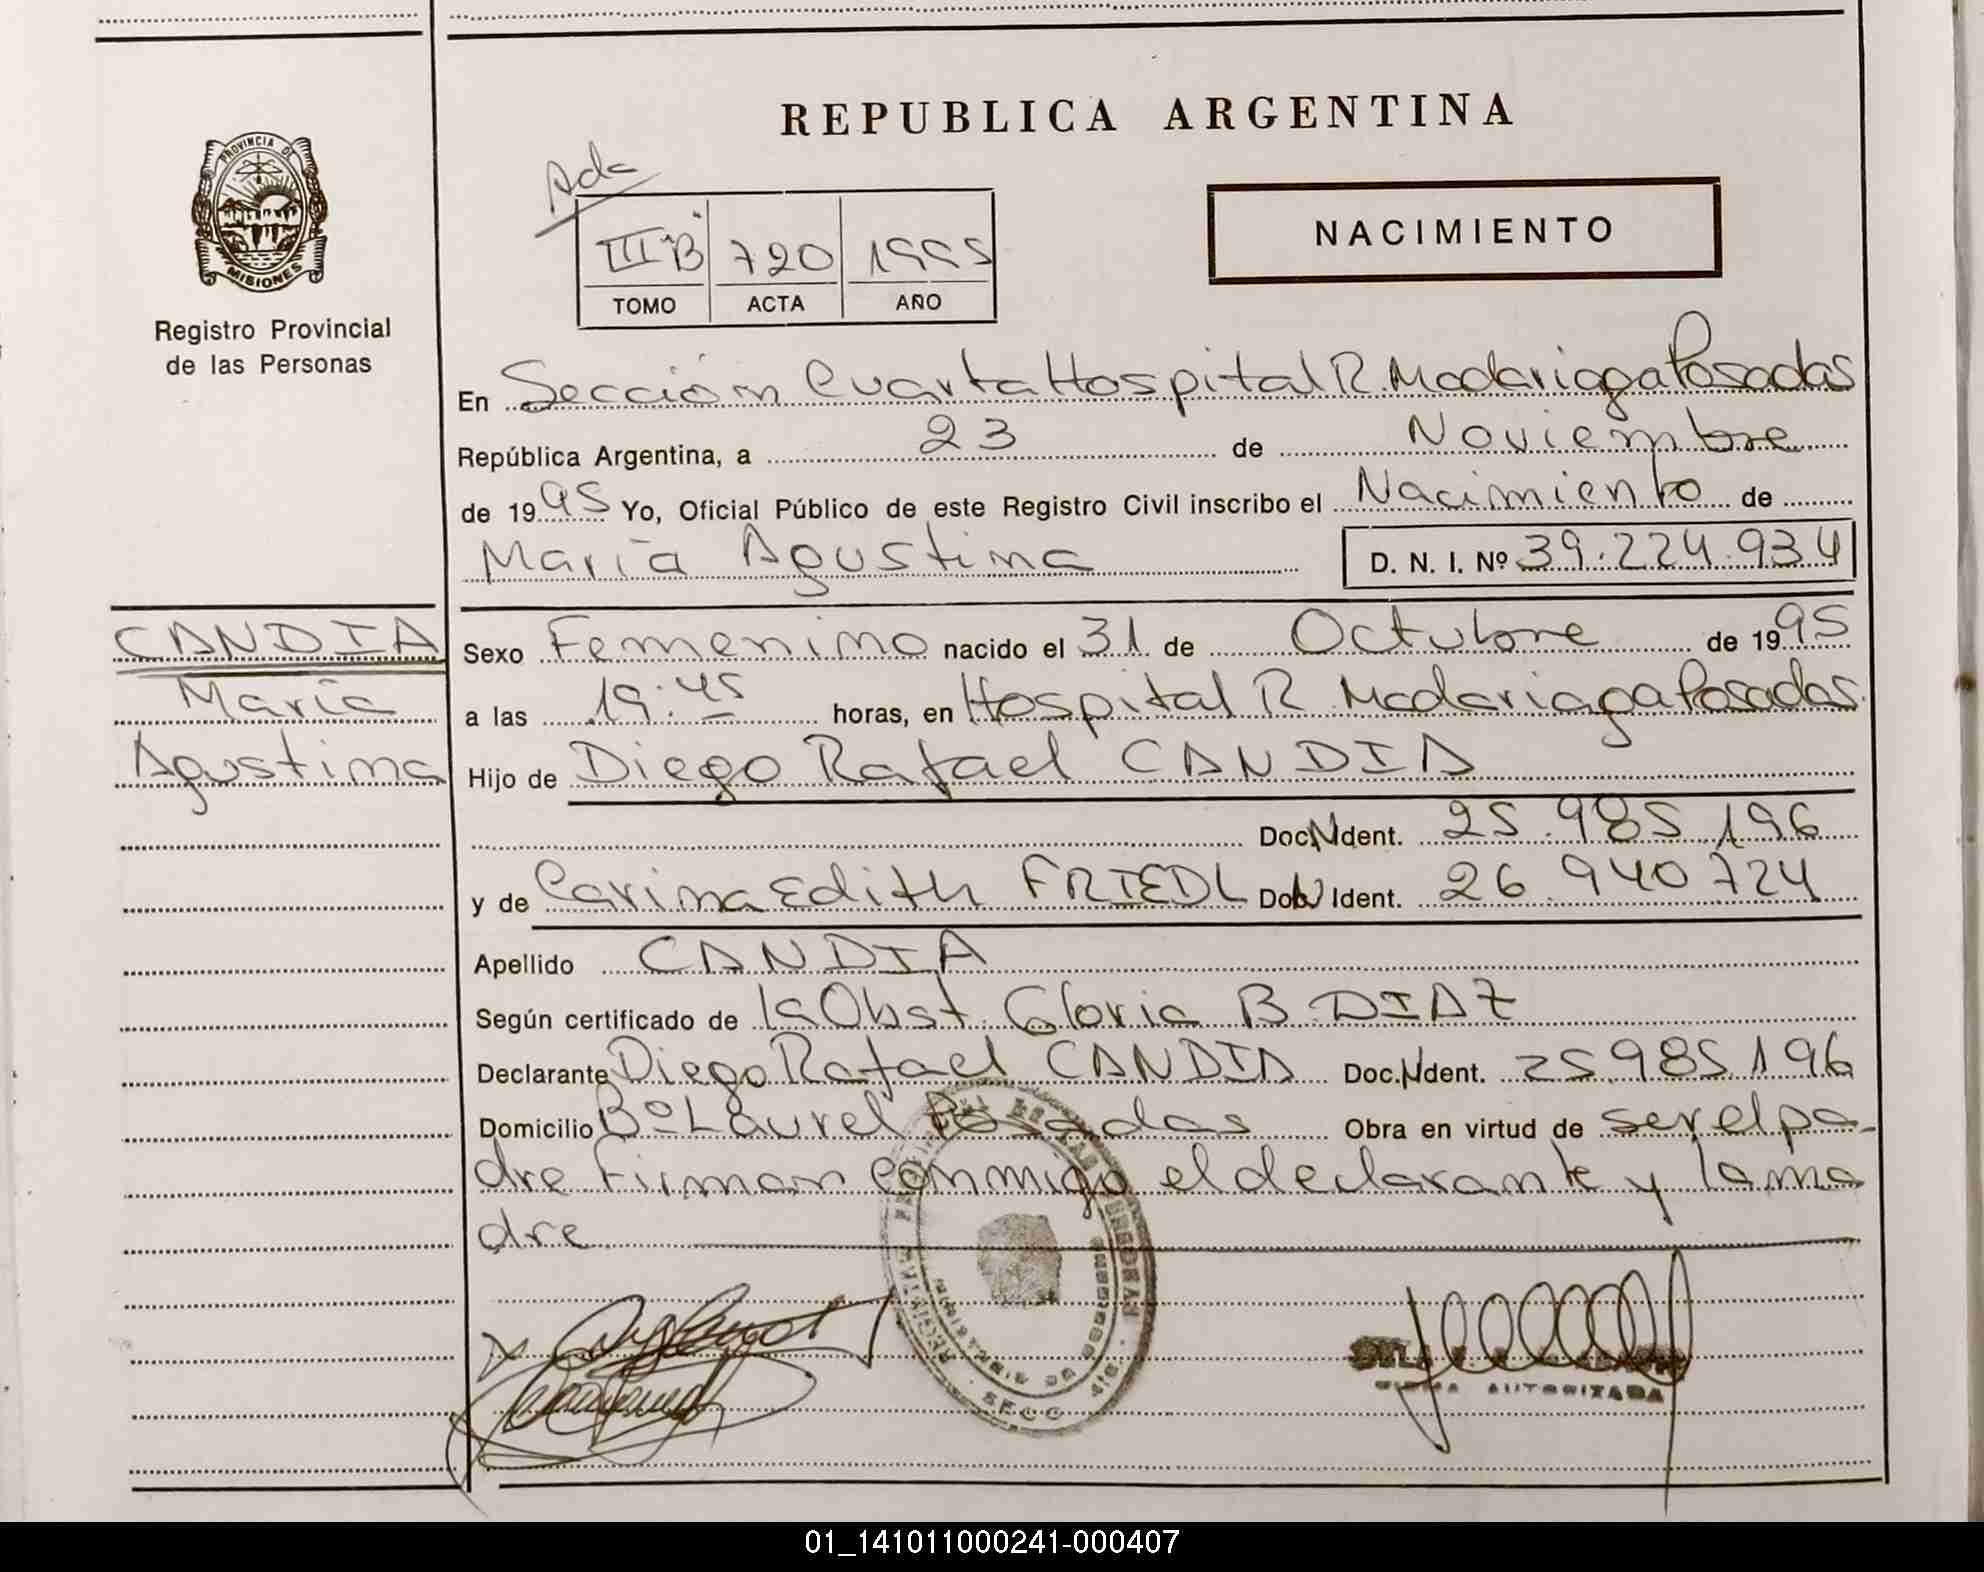 REPUBLICA ARGENTINA
PROVINCIA DE
MISIONES
Registro Provincial
de las Personas
III B 720 1995
TOMO ACTA AÑO
NACIMIENTO
En Sección Cuarta Hospital R. Madariaga Posadas
República Argentina, a 23 de Noviembre
de 1995 Yo, Oficial Público de este Registro Civil inscribo el Nacimiento de
María Agustina D. N. I. Nº 39.224.934
CANDIA
María
Agustina
Sexo Femenino nacido el 31 de Octubre de 1995
a las 19:45 horas, en Hospital R. Madariaga Posadas
Hijo de Diego Rafael CANDIA
Doc. N Ident. 25.985.196
y de Carina Edith FRIEDL Doc. N Ident. 26 940 724
Apellido CANDIA
Según certificado de la Obst. Gloria B. DIAZ
Declarante Diego Rafael CANDIA Doc. N Ident. 25985196
Domicilio Bº Laurel Posadas Obra en virtud de ser el pa-
dre Firman conmigo el declarante y la ma
dre
FIRMA AUTORIZADA
01_141011000241-000407